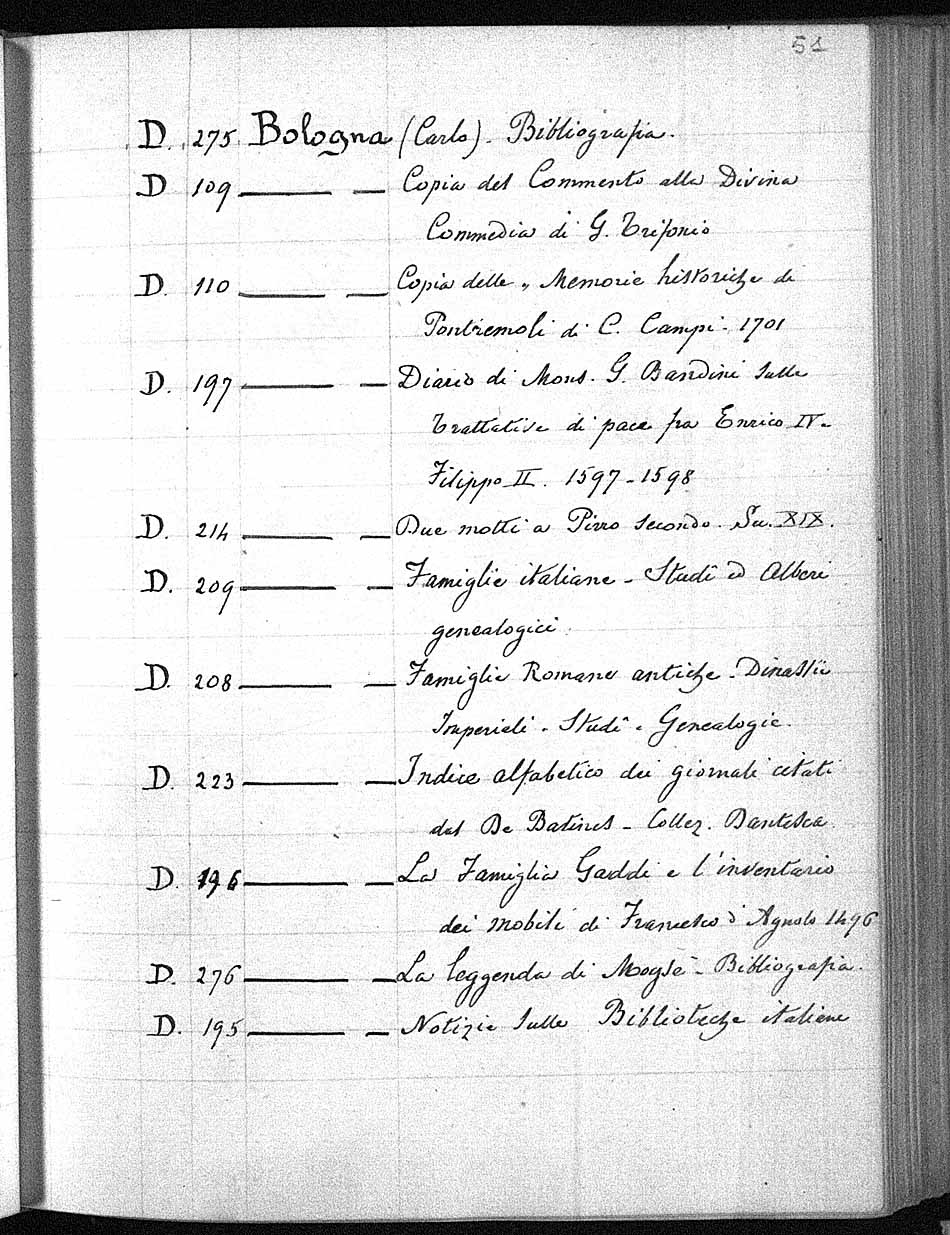 51
D. 275 Bologna (Carlo). Bibliografia.
D 109 — — Copia del Commento alla Divina
Commedia di G. Trifonio
D. 110 — — Copia delle „ Memorie historiche di
Pontremoli di C. Campi - 1701
D. 197 — — Diario di Mons. G. Bandini sulle
trattative di pace fra Enrico IV e
Filippo II. 1597-1598
D. 214 — — Due motti a Pirro secondo. Sec. XIX.
D. 209 — — Famiglie italiane - Studî ed Alberi
genealogici
D. 208 — — Famiglie Romane antiche - Dinastie
Imperiali - Studî - Genealogie.
D. 223 — — Indice alfabetico dei giornali citati
dal De Batines - Collez. Dantesca
D. 196 — — La Famiglia Gaddi e l'inventario
dei mobili di Francesco d'Agnolo 1496
D. 276 — — La leggenda di Moysè - Bibliografia.
D. 195 — — Notizie sulle Biblioteche italiane